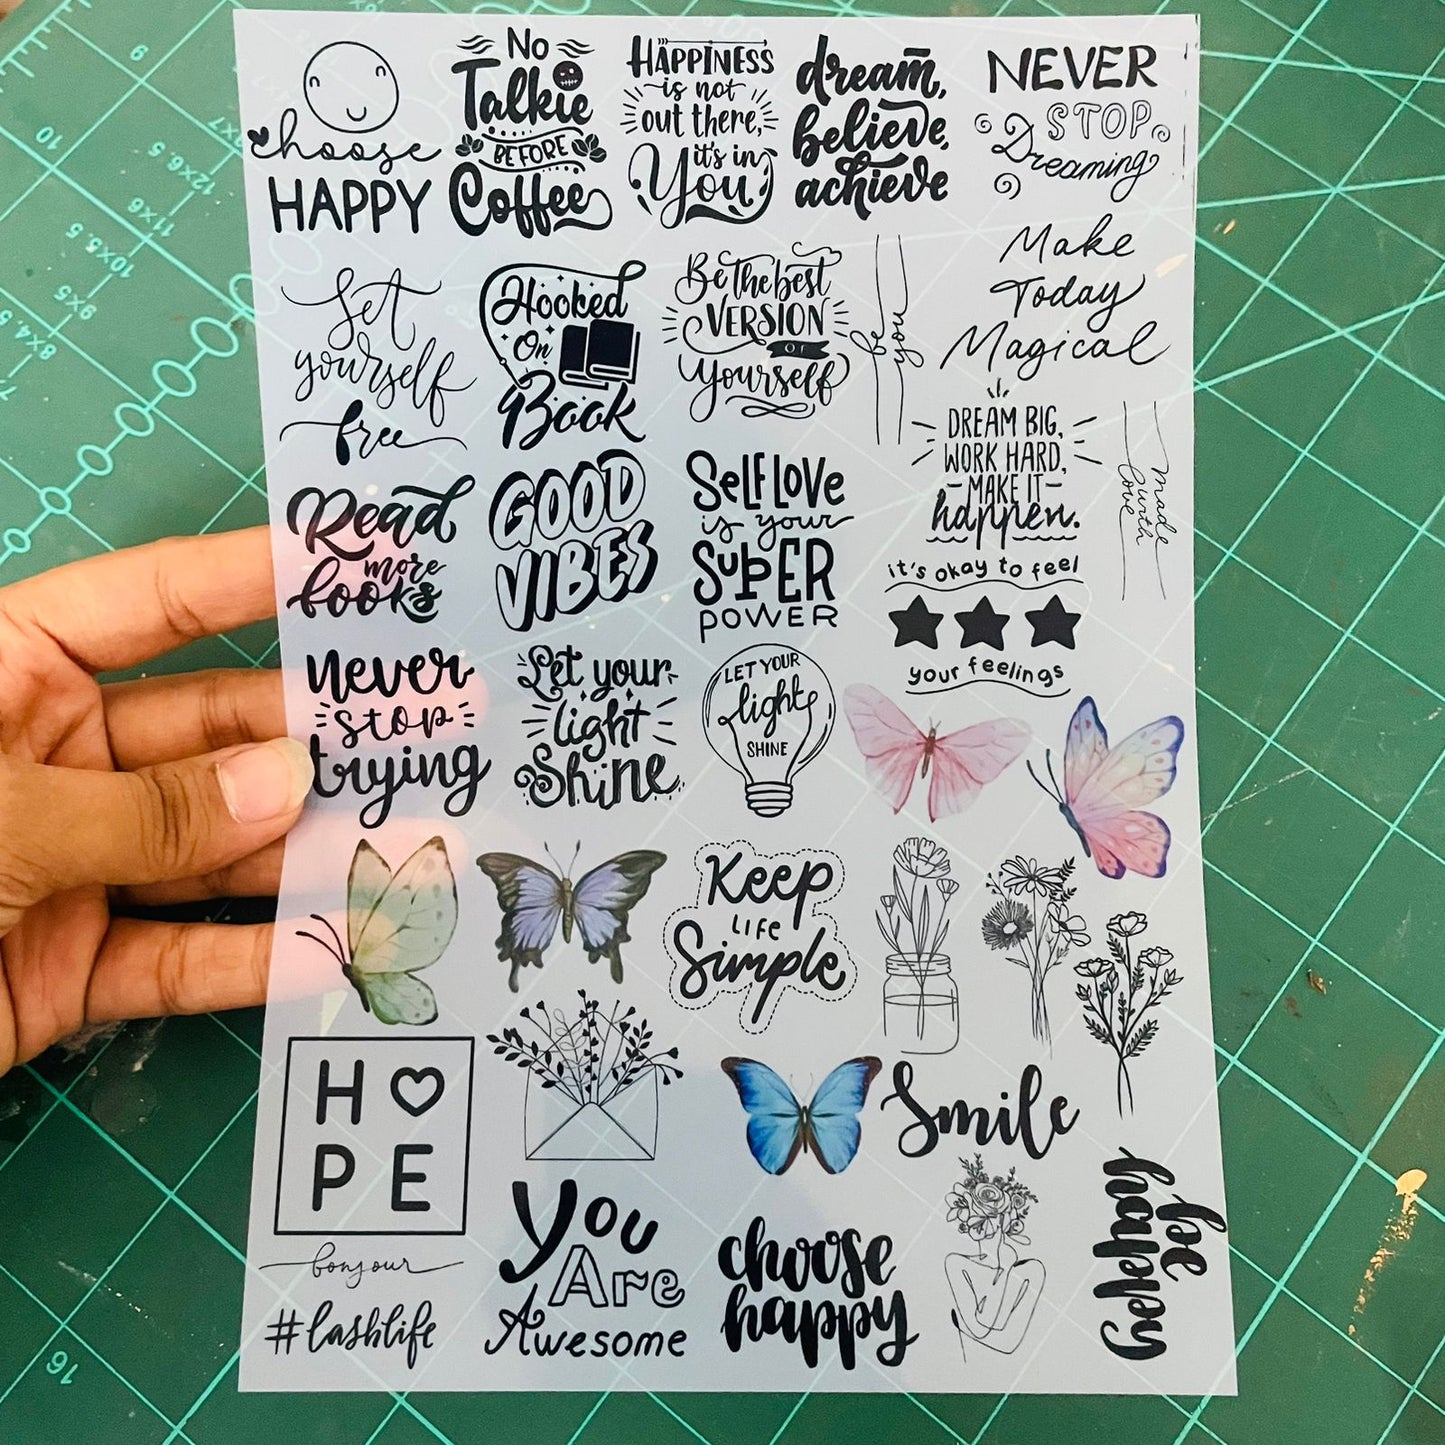 choose
HAPPY
No
Talkie
BEFORE
Coffee
HAPPINESS
is not
out there,
it's in
You
dream,
believe,
achieve
NEVER
STOP
Dreaming
Set
yourself
free
Hooked
On
Book
Be the best
VERSION
OF
Yourself
be
you
Make
Today
Magical
Read
more
books
GOOD
VIBES
SELF LOVE
is your
SUPER
POWER
DREAM BIG,
WORK HARD,
MAKE IT
happen.
made
with
love
it's okay to feel
your feelings
never
stop
trying
Let your
light
Shine
LET YOUR
light
SHINE
Keep
LIFE
Simple
HOPE
Smile
bonjour
#lashlife
You
Are
Awesome
choose
happy
9
10
12X6.5
11X6
10X5.5
9X5
8X4.5
16